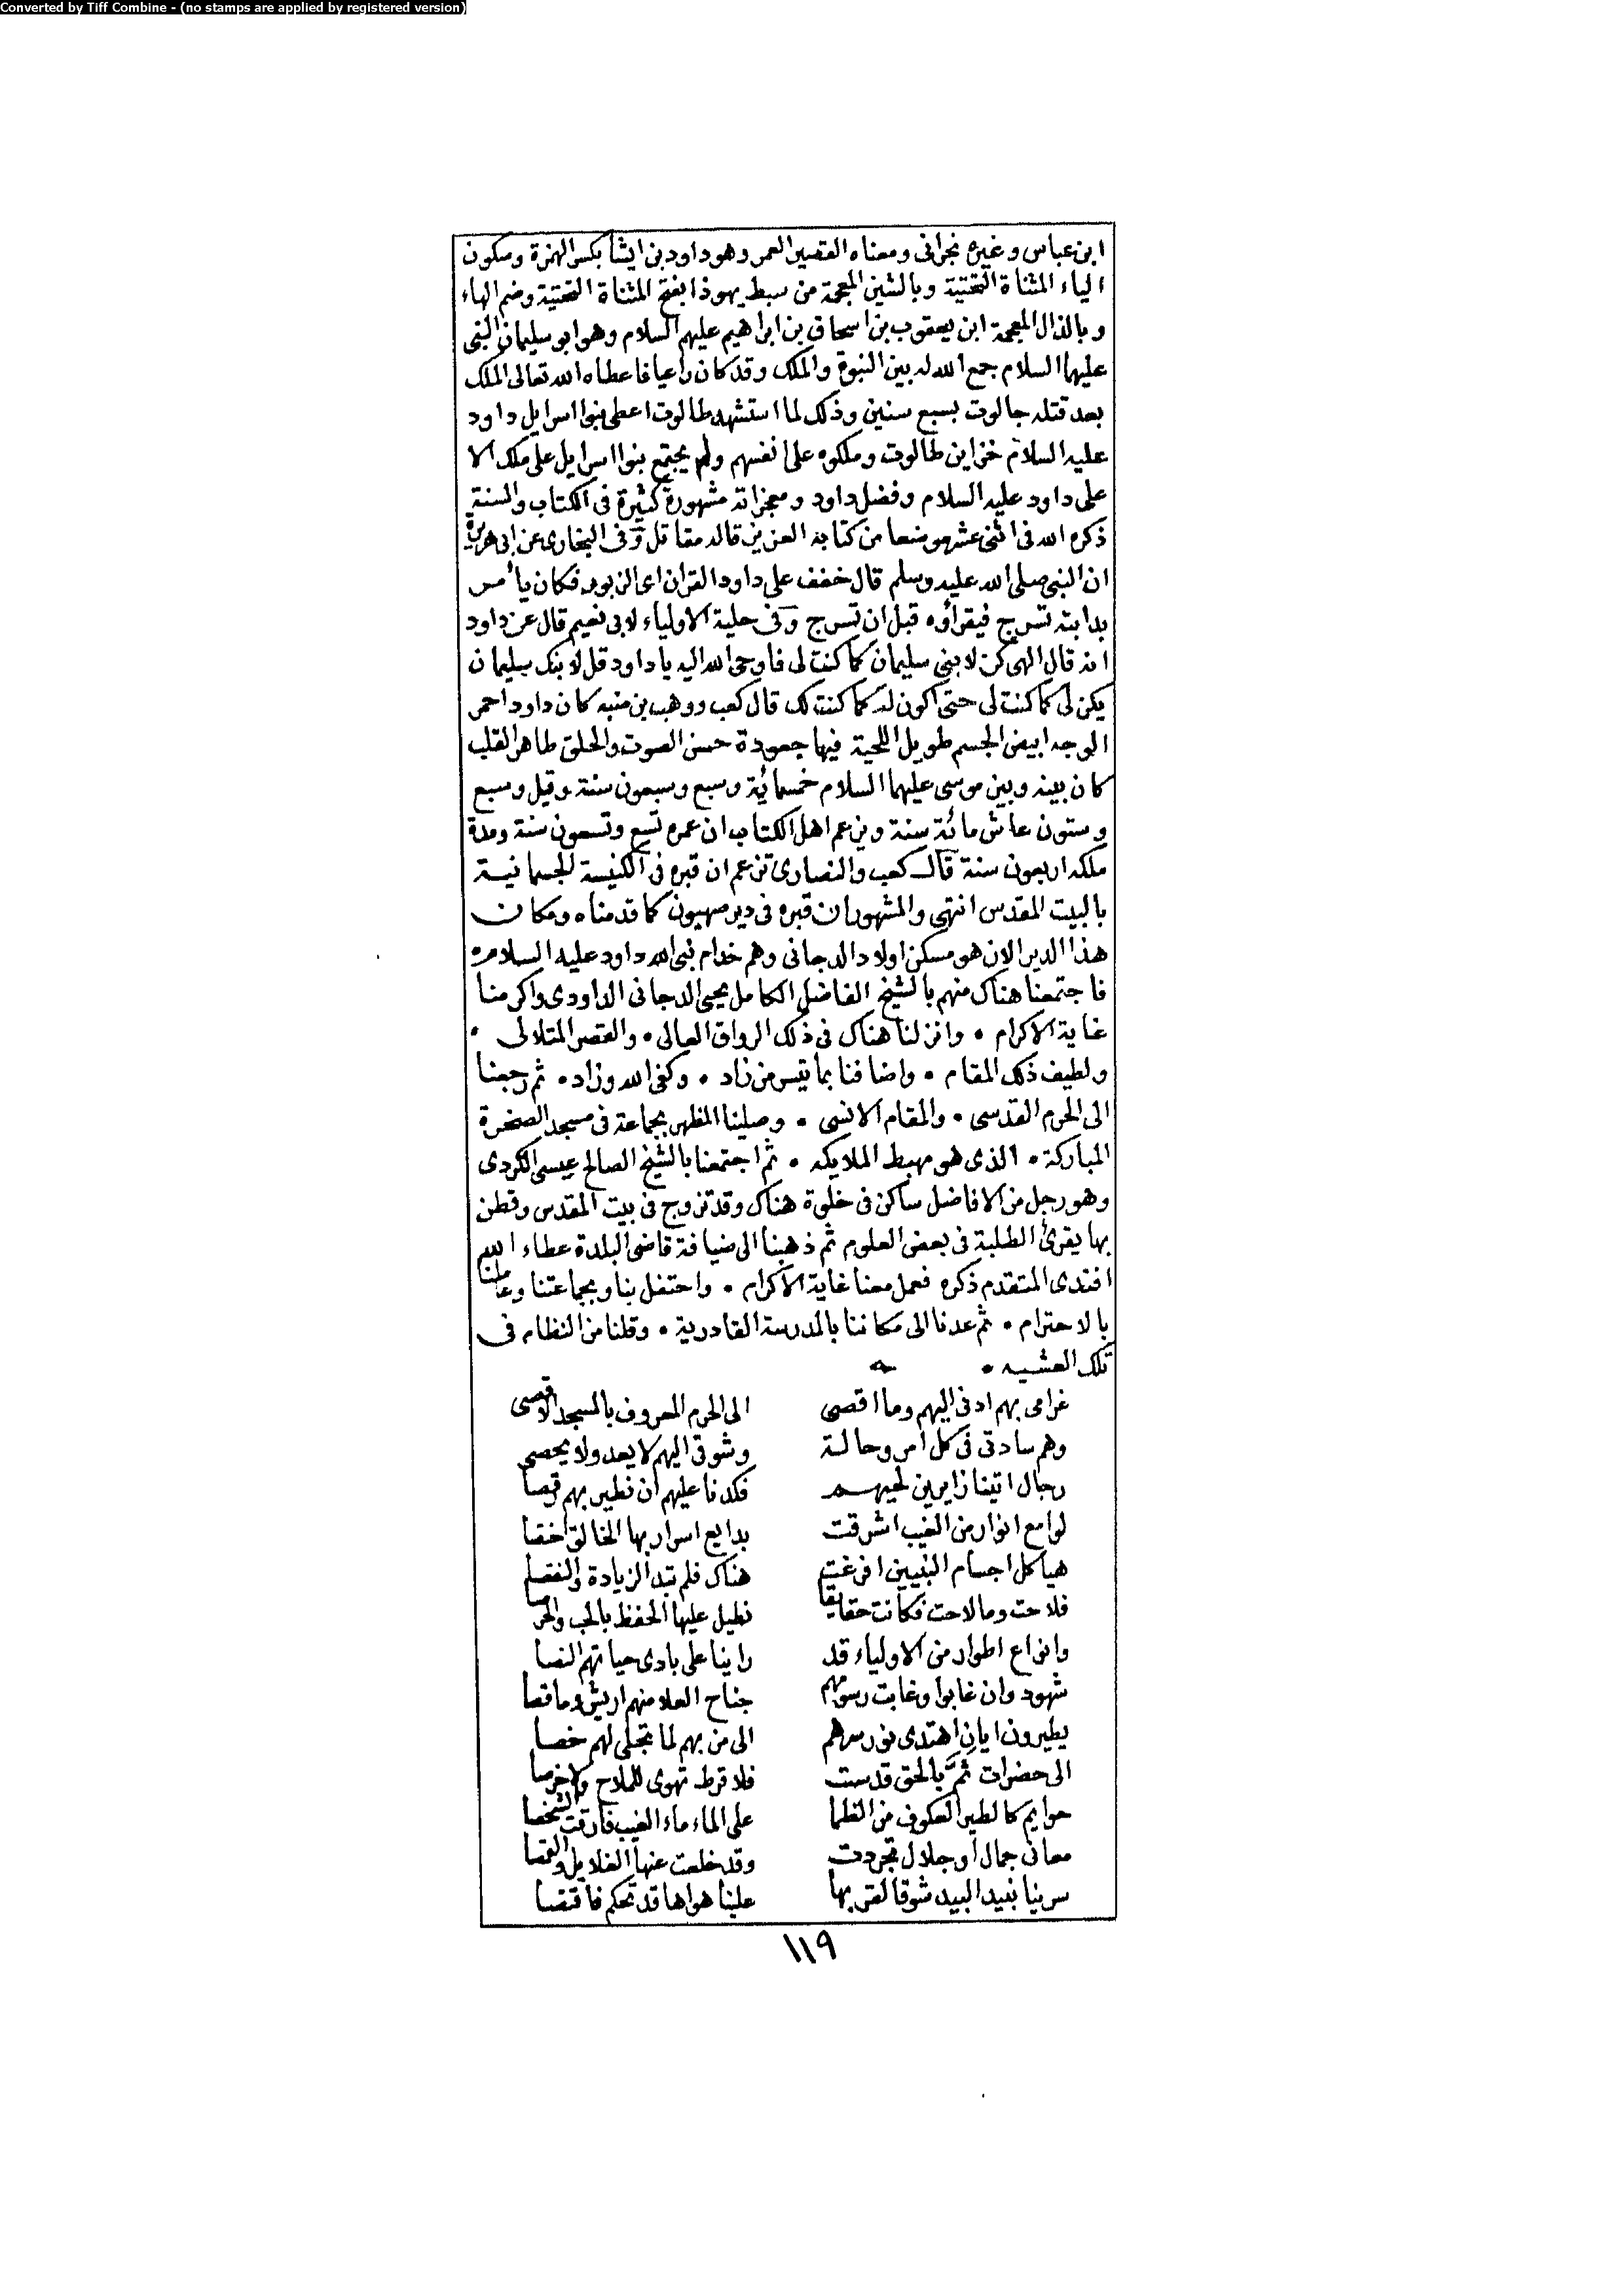 Converted by Tiff Combine - (no stamps are applied by registered version)
ابن عباس وغيره نجرانى ومعناه القصير العمر وهو داود بن ايشا بكسر الهمزة وسكون
الياء المثناة التحتية وبالشين المعجمة من سبط يهوذا بفتح المثناة التحتية وضم الهاء
وبالذال المعجمة ابن يعقوب بن اسحاق بن ابراهيم عليهم السلام وهو ابو سليمان النبى
عليهما السلام جمع الله له بين النبوة والملك وقد كان راعيا فاعطاه الله تعالى الملك
بعد قتله جالوت بسبع سنين وذلك لما استشهد طالوت اعطى بنوا اسرايل داود
عليه السلام خزاين طالوت وملكوه على انفسهم ولم يجتمع بنوا اسرايل على ملك الا
على داود عليه السلام وفضل داود ومعجزاته مشهورة كثيرة فى الكتاب والسنة
ذكره الله فى اثنى عشر موضعا من كتابه العزيز قاله مقاتل وفى البخارى عن ابى هريرة
ان النبى صلى الله عليه وسلم قال خفف على داود القران اى الزبور فكان يأمر
بدابته تسرج فيقرأوه قبل ان تسرج وفى حلية الاولياء لابى نعيم قال عن داود
انه قال الهى كن لابنى سليمان كما كنت لى فاوحى الله اليه يا داود قل لابنك سليمان
يكن لى كما كنت لى حتى اكون له كما كنت لك قال كعب ووهب بن منبه كان داود احمر
الوجه ابيض الجسم طويل اللحية فيها جعودة حسن الصوت والخلق طاهر القلب
كان بينه وبين موسى عليهما السلام خمسمائة وسبع وسبعون سنة وقيل وسبع
وستون عاش مائة سنة ويزعم اهل الكتاب ان عمره تسع وتسعون سنة ومدة
ملكه اربعون سنة قال كعب والنصارى تزعم ان قبره فى الكنيسة الجسمانية
بالبيت المقدس انتهى والمشهور ان قبره فى دير صهيون كما قدمناه ومكان
هذا الدير الان هو مسكن اولاد الدجانى وهم خدام نبى الله داود عليه السلام
فاجتمعنا هناك منهم بالشيخ الفاضل الكامل يحيى الدجانى الداودى واكرمنا
غاية الاكرام • وانزلنا هناك فى ذلك الرواق العالى • والقصر المتلالى •
ولطيف ذلك المقام • واضافنا بما تيسر من زاد • وكفى الله وزاد • ثم رجعنا
الى الحرم القدسى • والمقام الانسى • وصلينا الظهر بجماعة فى مسجد الصخرة
المباركة • الذى هو مهبط الملايكه • ثم اجتمعنا بالشيخ الصالح عيسى الكردى
وهو رجل من الافاضل ساكن فى خلوة هناك وقد تزوج فى بيت المقدس وقطن
بها يقرئ الطلبة فى بعض العلوم ثم ذهبنا الى ضيافة قاضى البلدة عطاء الله
افندى المتقدم ذكره فعمل معنا غاية الاكرام • واحتفل بنا وبجماعتنا وعاملنا
بالاحترام • ثم عدنا الى مكاننا بالمدرسة القادرية • وقلنا من النظام فى
تلك العشيه •
غرامى بهم ادنى اليهم وما اقصى الى الحرم المعروف بالمسجد الاقصى
وهم سادتى فى كل امر وحالة وشوقى اليهم لا يعد ولا يحصى
رجال اتينا زايرين لحيهم فكدنا عليهم ان نطير بهم رقصا
لوامع انوار من الغيب اشرقت بدايع اسرار بها الخالق اختصا
هياكل اجسام النبيين افرغت هناك فلم تبد الزيادة والنقصا
فلاحت وما لاحت فكانت حقايقا نطيل عليها الحفظ بالحب والحرصا
وانواع اطوار من الاولياء قد راينا على بادى حياتهم النصا
شهود وان غابوا وغابت رسومهم جناح العلا منهم اريش وما قصا
يطيرون ايان اهتدى نور سرهم الى من بهم لما تجلى لهم خصا
الى حضرات ثم بالحق قدست فلا قرط تهوى للملاح ولا خرصا
حوايم كالطير العكوف من الظما على الماء ماء الغيب فارقت الشخصا
معانى جمال او جلال تجردت وقد خلعت عنها الغلايل والقمصا
سرينا بنيد البيد شوقا لقربها علينا هواها قد تحكم فاقتصا
١١٩